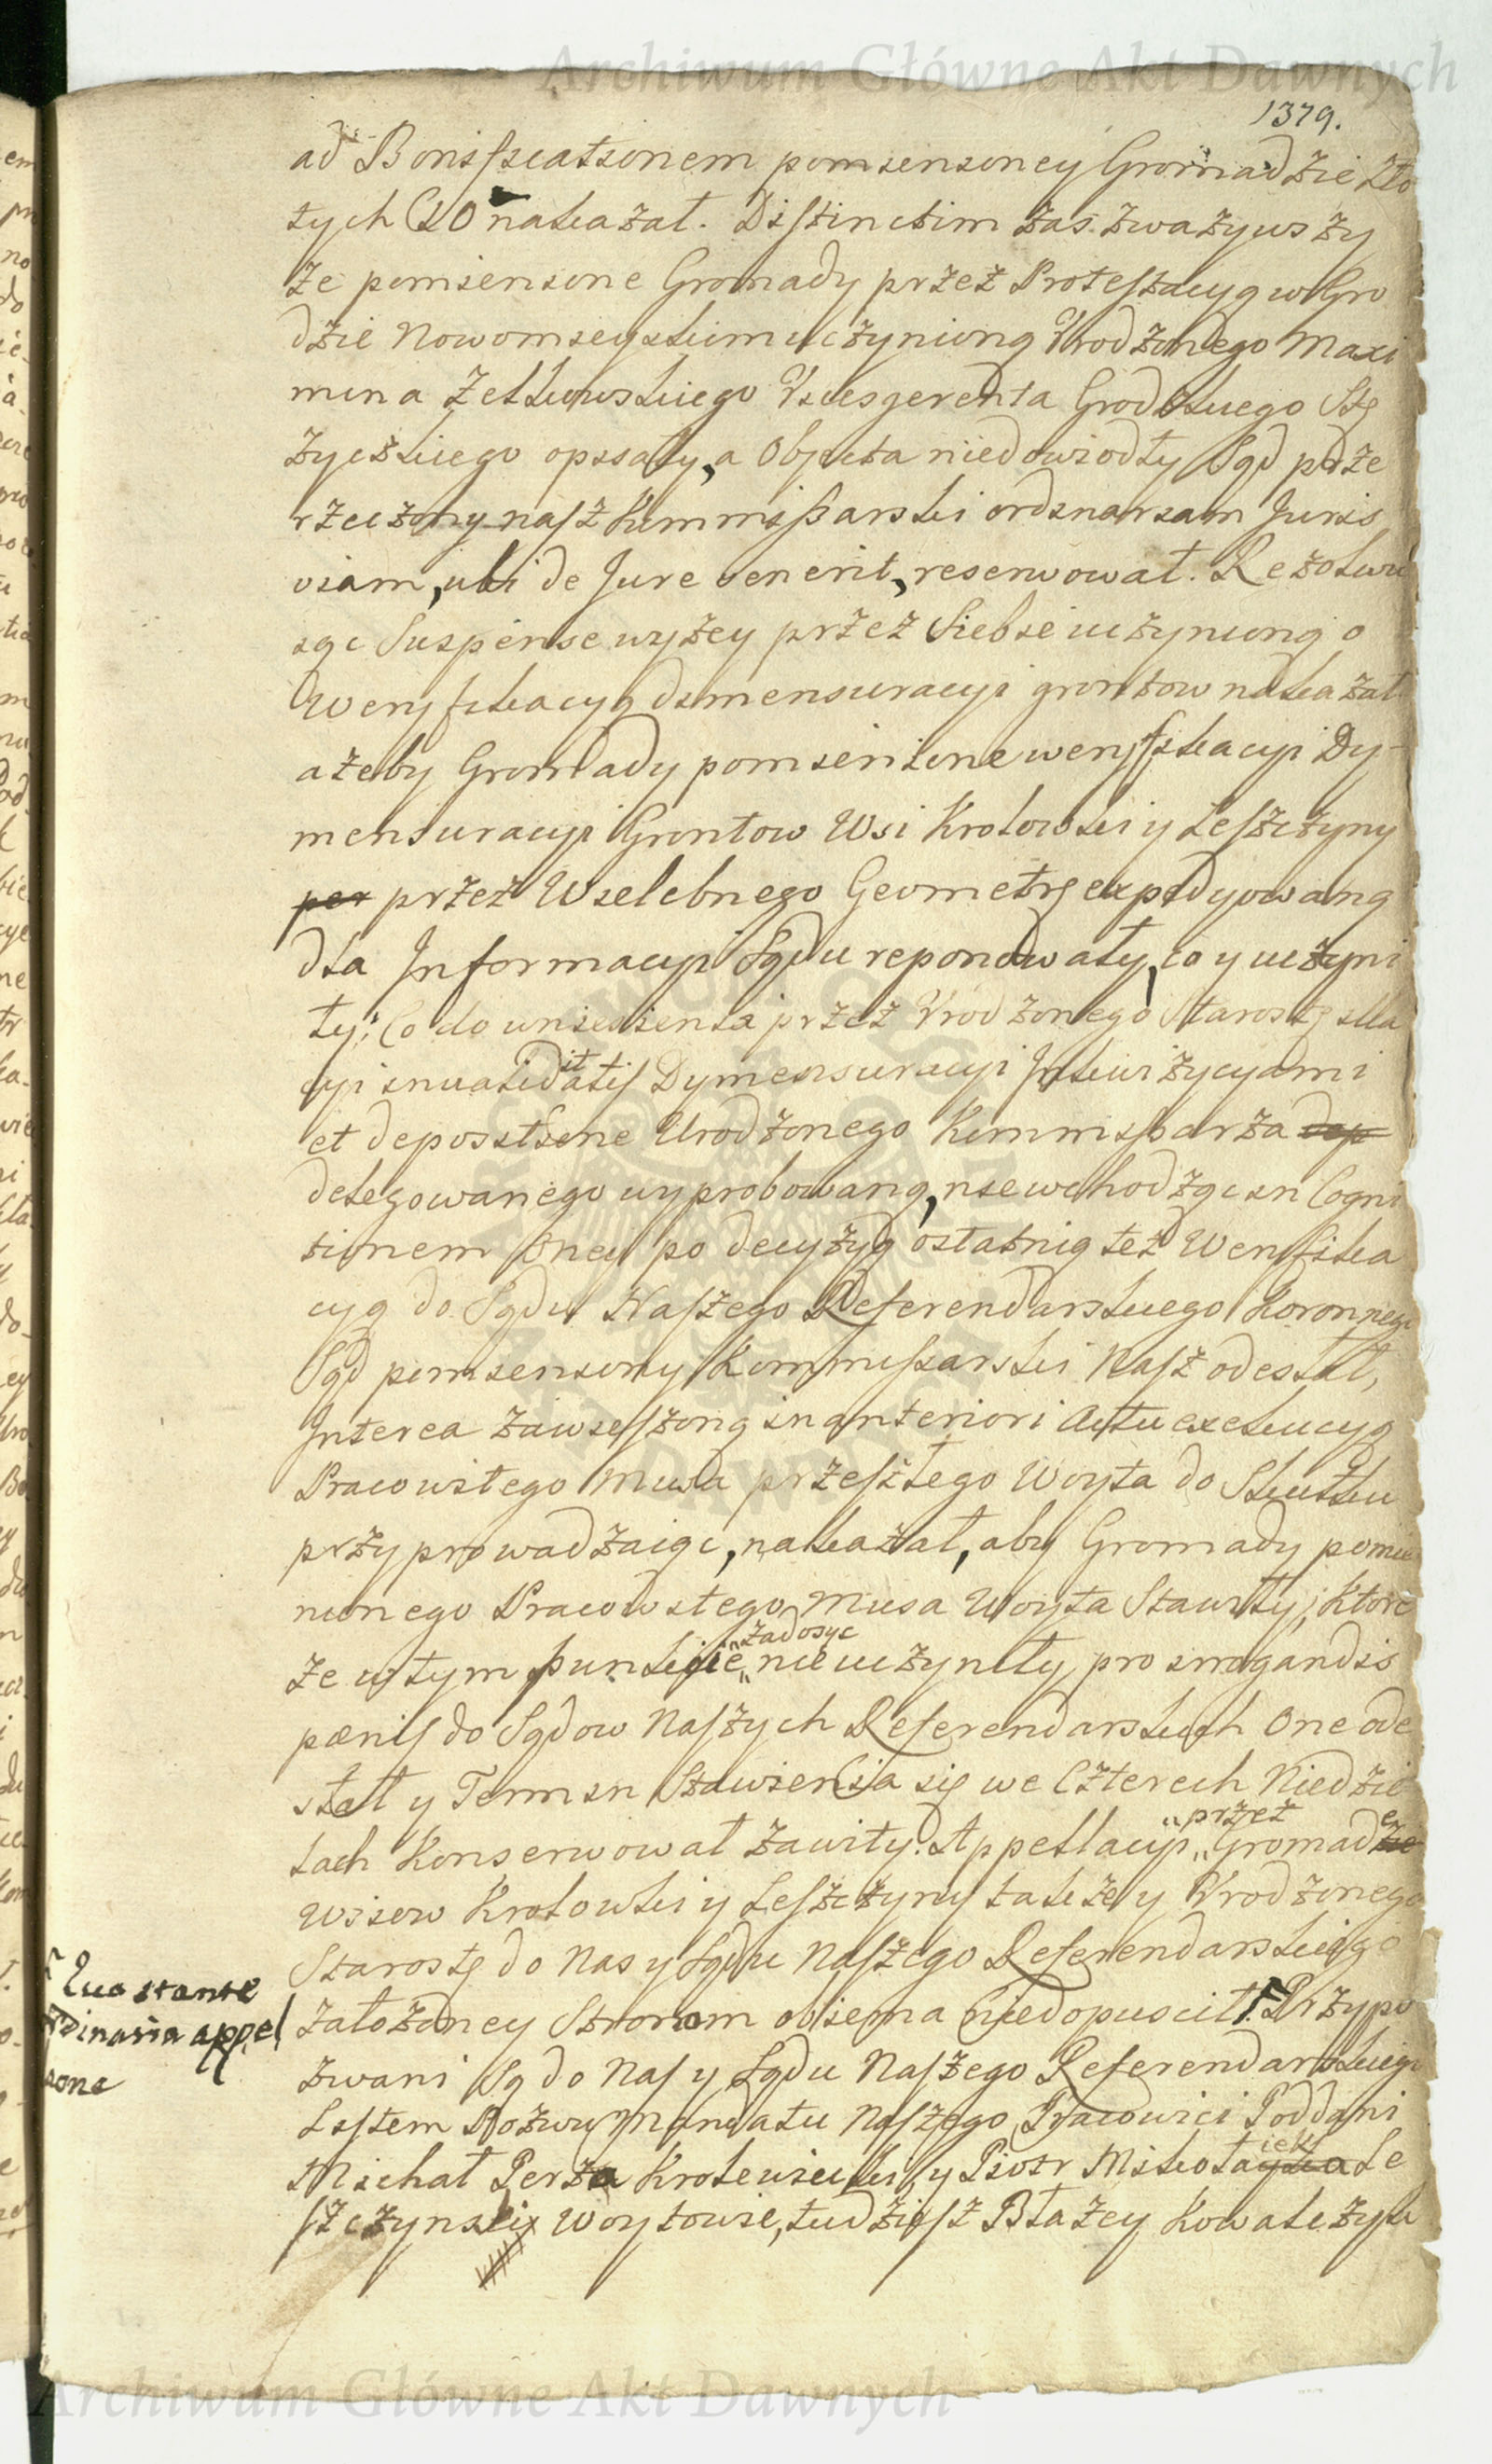 Archiwum Główne Akt Dawnych
1379.
ad Bonificationem pomienioney Gromadzie Zło
tych 60 nakazał. Distinctim zas zwazywszy
ze pomienione Gromady przez Protestacyą w Gro
dzie Nowomieyskim uczynioną Urodzonego Maxi
mina Zelkowskiego Vicesgerenta Grodzkiego Stę
zyckiego opisały, a Objecta niedowiodły Sąd prze
rzeczony nasz Kommissarski ordinariam Juris
viam, ubi de Jure venerit, reserwował. Rezolwu
iąc Suspense wyżey przez Siebie uczynioną o
Weryfikacyą dimensuracyi grontow nakazał
ażeby Gromady pomienione weryfikacyi Dy-
mensuracyi Grontow Wsi Krolowki y Leszczyny
per przez Wielebnego Geometrę expedyowaną
dla Informacyi Sądu reponowały, co y uczyni
ły; Co do uniesienia przez Urodzonego Starostę illa
cyi invaliditatis Dymensuracyi Inkwizycyami
et depositione Urodzonego Kommissarza dep
delegowanego wyprobowaną, niewchodząc in Cogni
tionem oney po decyzyą ostatnią też Weryfika
cyą do Sądu Naszego Referendarskiego Koronnego
Sąd pomieniony Kommissarski Nasz odesłał,
Interea zawieszoną in anteriori Actu exekucyą
Pracowitego Musa przeszłego Woyta do Skutku
przyprowadzaiąc, nakazał, aby Gromady pomie
nionego Pracowitego Musa Woyta Stawiły; Ktore
że w tym punkcie „zadosyc„ nie uczyniły, pro irrogandis
pœnis do Sądow Naszych Referendarskich One ode
słał y Termin Stawienia się we Czterech Niedzie
lach Konserwował zawity. Appellacyi „przez„ Gromadzie e
Wsiow Krolowki y Leszczyny także y Urodzonego
Starostę do Nas y Sądu Naszego Referendarskiego
założoney Stronom obiema niedopuscił. Przypo
zwani Są do Nas y Sądu Naszego Referendarskiego
Listem Pozwu Mandatu Naszego Pracowici Poddani
Michał Perza Krolewiecki, y Piotr Mikołayka iek Le
szczynski Woytowie, tudzież Błażey Kowalczyk
Qua stante
rdinaria appel
ione
Archiwum Główne Akt Dawnych